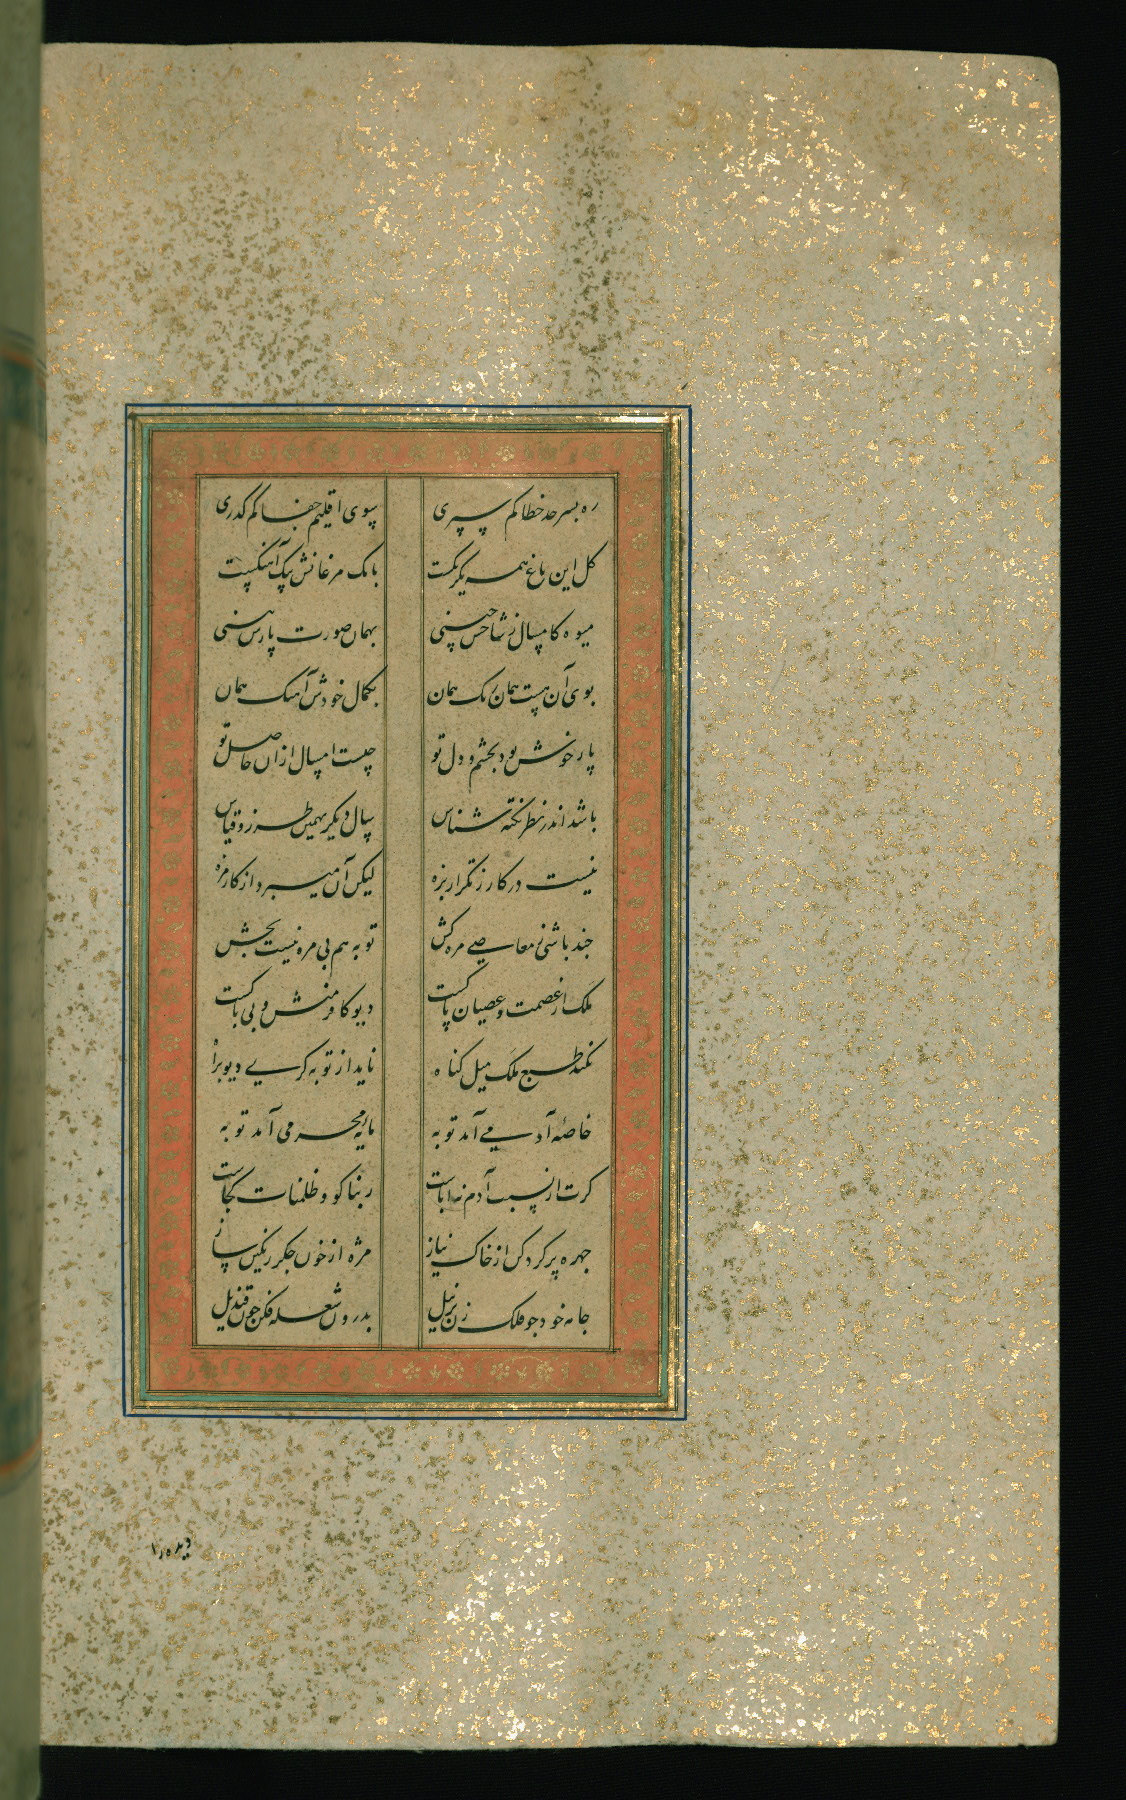 ره بسرحد خطا کم سپری بسوی اقلیم جفا کم کذری
کل این باغ همه یکرنکست بانک مرغانش بیک آهنکست
میوه کامسال ز شاخش چینی بهمان صورت پارش بینی
بوی آن هست همان رنک همان بکمال خودش آهنک همان
پار خوش بود بچشم و دل تو چیست امسال ازان حاصل تو
باشد اندر نظر نکته شناس سال دیکر بهمین طرز و قیاس
نیست در کار ز تکرار بزه لیکن آن میبرد از کار مزه
چند باشی ز معاصی مزه کش توبه هم بی مزه نیست بچش
ملک از عصمت و عصیان پاکست دیو کافرمنش و بی باکست
نکند طبع ملک میل کناه ناید از توبه کری دیو براه
خاصه آدمی آمد توبه مایه محرمی آمد توبه
کرت از نسب آدم نه اباست ربنا کو و ظلمنات کجاست
چهره پر کرد کن از خاک نیاز مژه از خون جکر رنکین ساز
جامه خود چو فلک زن بر نیل بدرون شعله فکن چون قندیل
دیده را